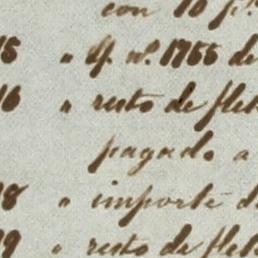 con 10 p.
15 " nº. 1755 de
16 " resto de flet
pagado a
18 " importe d
19 " resto de flet